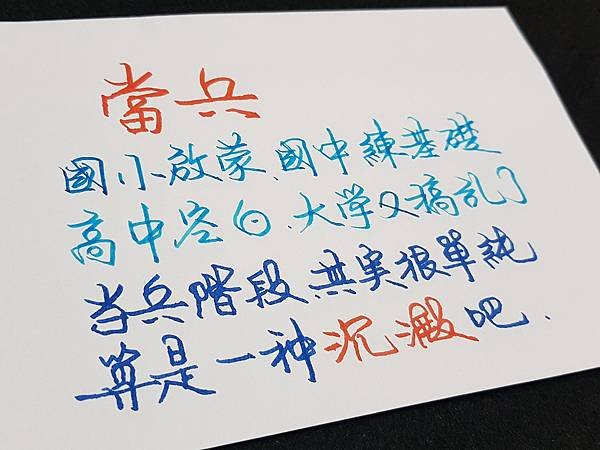 當兵
國小啟蒙、國中練基礎
高中空白、大学又搞乱了
当兵階段、其实很單純
算是一种沉澱吧.